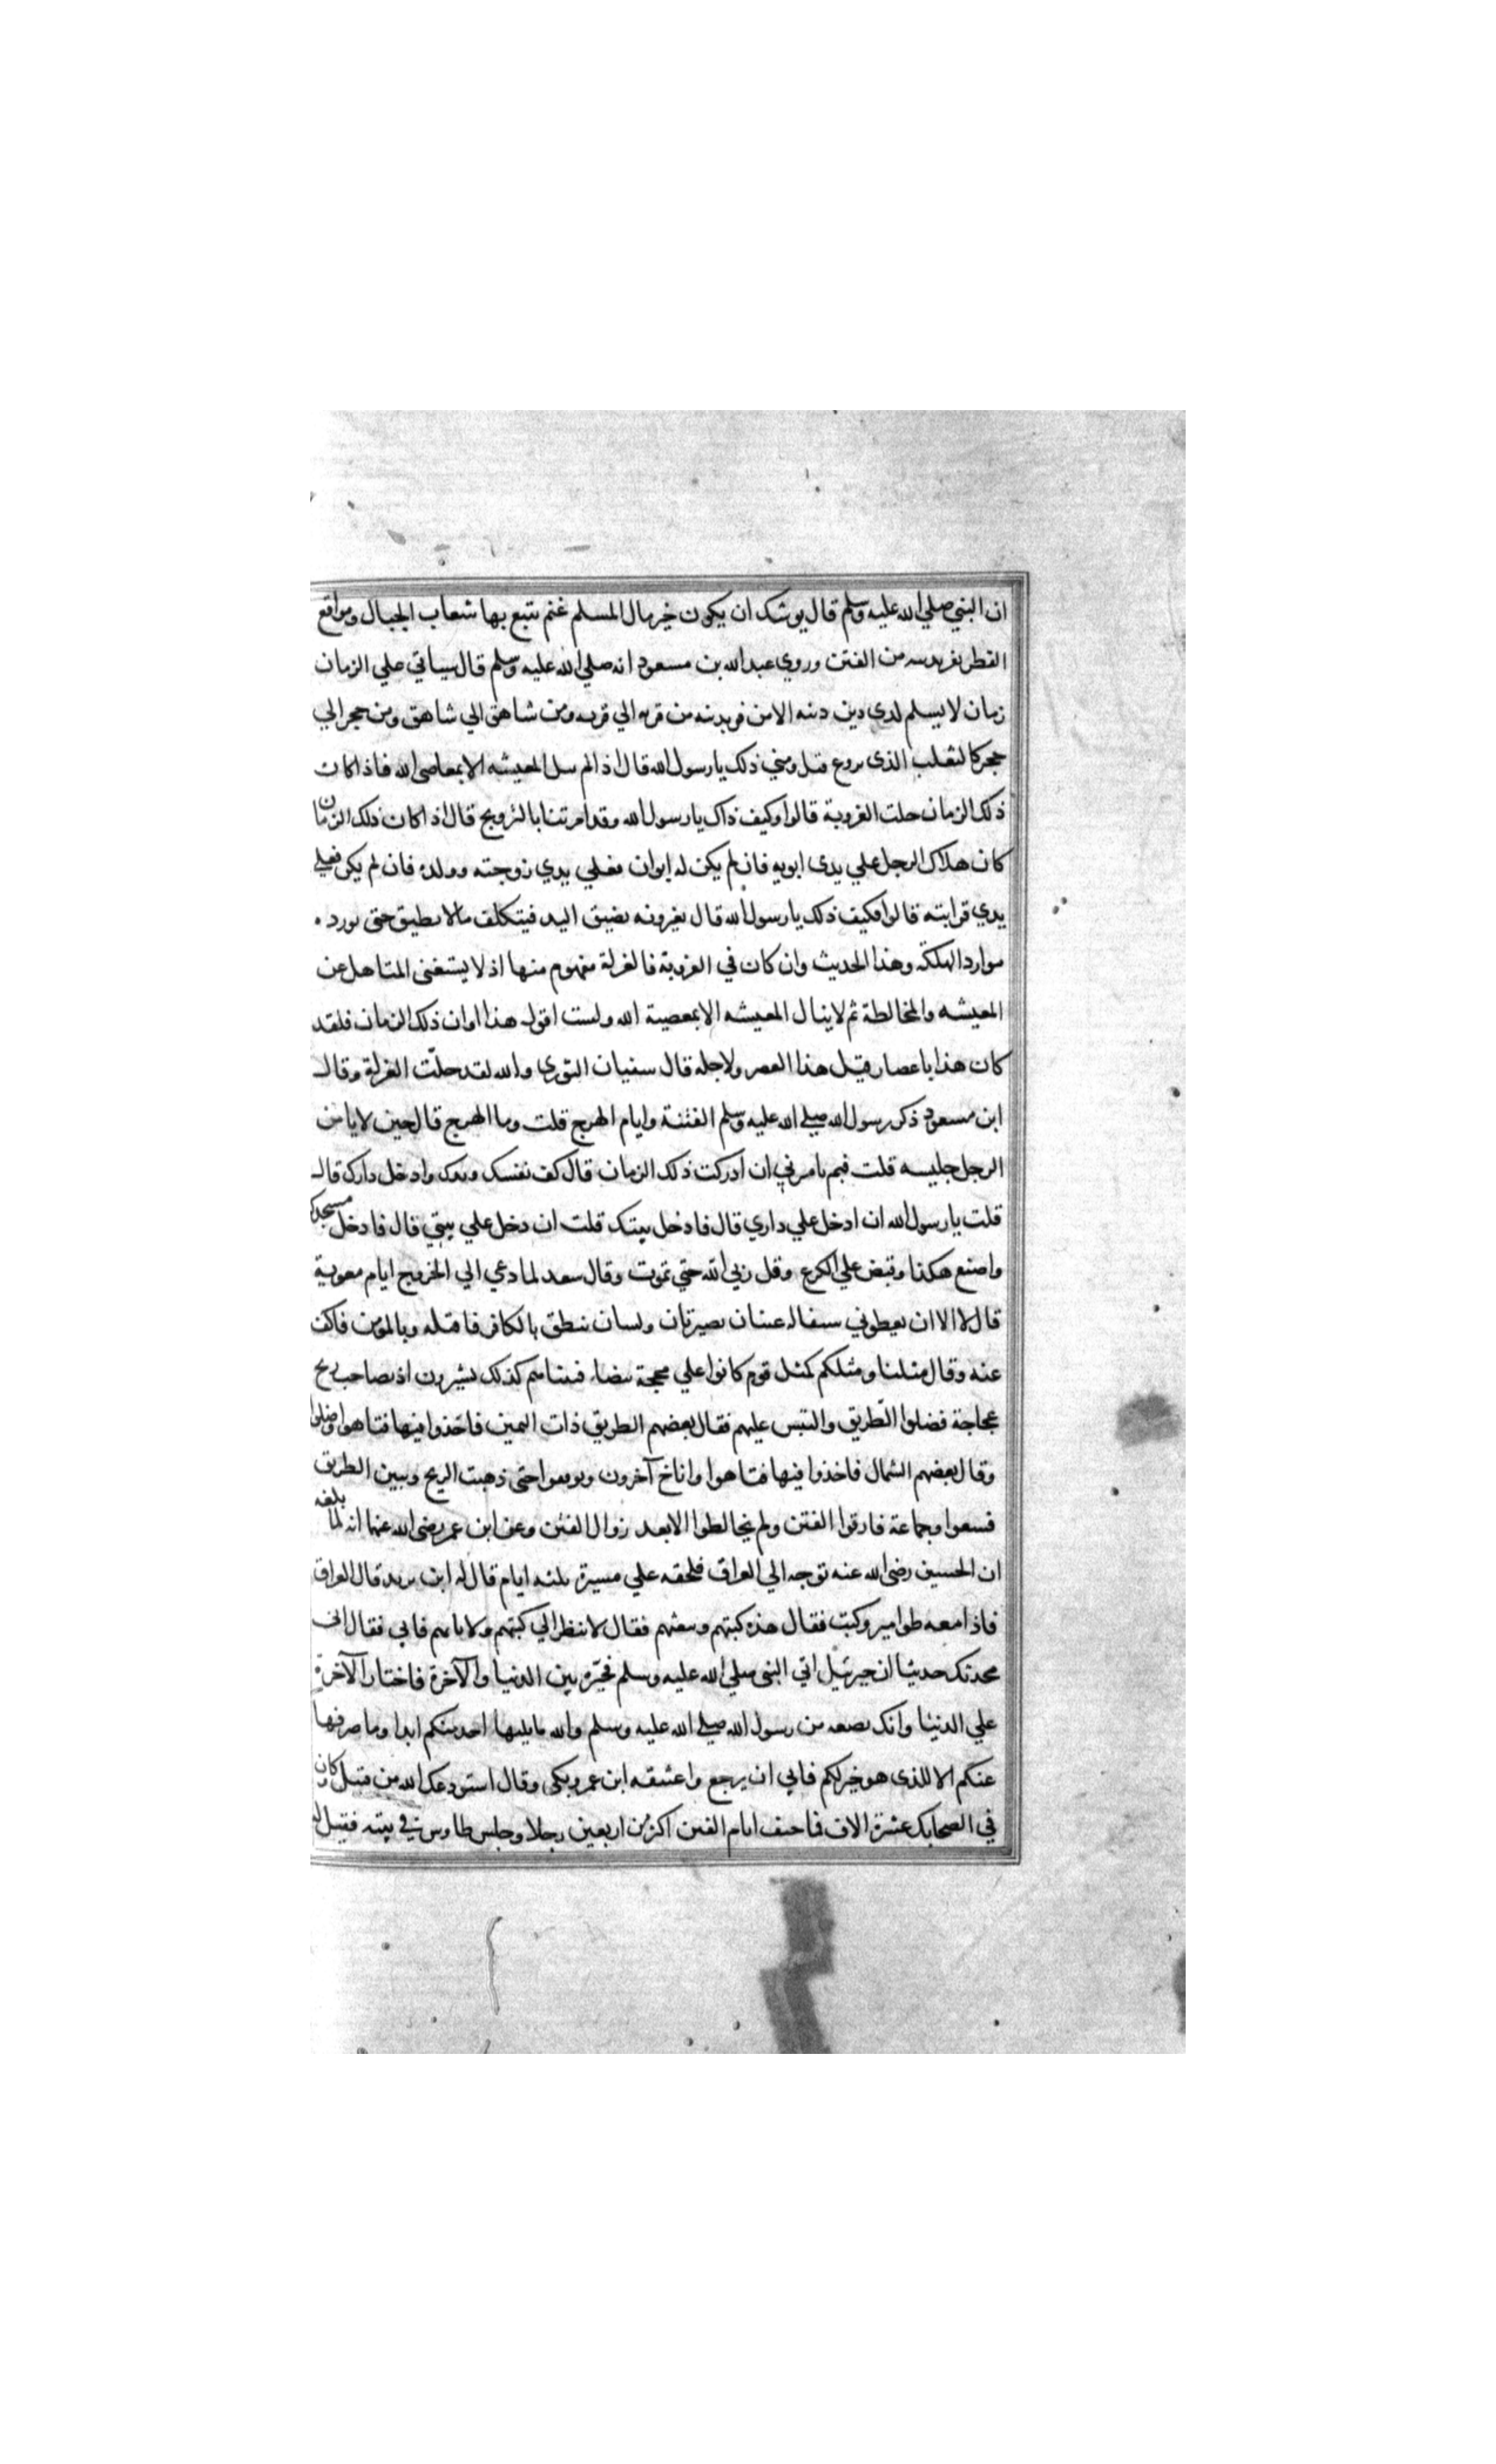 ان النبي صلي الله عليه وسلم قال يوشك ان يكون خير مال المسلم غنم يتبع بها شعاب الجبال ومواقع
القطر يفر بدينه من الفتن وروي عبد الله بن مسعود انه صلي الله عليه وسلم قال سياتي علي الزمان
زمان لا يسلم لذى دين دينه الا من فر بدينه من قريه الي قريه ومن شاهق الي شاهق ومن حجر الي
حجر كالثعلب الذى يروع قيل ومتي ذلك يا رسول الله قال اذا لم ينل المعيشه الا بمعاصى الله فاذا كان
ذلك الزمان حلت العزوبة قالوا وكيف ذاك يا رسول الله وقد امرتنا بالتزويج قال اذا كان ذلك الزمان
كان هلاك الرجل علي يدى ابويه فان لم يكن له ابوان فعلي يدي زوجته وولده فان لم يكن فعلي
يدي قرابته قالوا فكيف ذلك يا رسول الله قال يعيرونه بضيق اليد فيتكلف ما لا يطيق حتى يورده
موارد الهلكة وهذا الحديث وان كان في العزوبة فالعزلة مفهوم منها اذ لا يستغنى المتاهل عن
المعيشه والمخالطة ثم لا ينال المعيشه الا بمعصية الله ولست اقول هذا اوان ذلك الزمان فلقد
كان هذا باعصار قبل هذا العصر ولاجله قال سفيان الثورى والله لقد حلّت العزلة وقال
ابن مسعود ذكر رسول الله صلي الله عليه وسلم الفتنة وايام الهرج قلت وما الهرج قال حين لا يامن
الرجل جليسه قلت فبم تامرني ان ادركت ذلك الزمان قال كف نفسك ويدك وادخل دارك قال
قلت يا رسول الله ان ادخل علي داري قال فادخل بيتك قلت ان دخل علي بيتي قال فادخل مسجدك
واصنع هكذا وقبض علي الكوع وقل ربي الله حتي تموت وقال سعد لما دعي الي الخروج ايام معوية
قال لا الا ان يعطوني سيفا له عينان بصيرتان ولسان ينطق بالكافر فاقتله وبالمومن فاكف
عنه وقال مثلنا ومثلكم كمثل قوم كانوا علي محجة بيضاء فبيناهم كذلك يسيرون اذ صاحب ريح
عجاجة فضلوا الطّريق والتبس عليهم فقال بعضهم الطريق ذات اليمين فاخذوا فيها فتاهوا وضلوا
وقال بعضهم الشمال فاخذوا فيها فتاهوا واناخ آخرون وتوقفوا حتى ذهبت الريح وتبين الطريق
فسعوا وجماعة فارقوا الفتن ولم يخالطوا الا بعد زوال الفتن وعن ابن عمر رضى الله عنهما انه لما بلغه
ان الحسين رضى الله عنه توجه الي العراق فلحقه علي مسيرة ثلثه ايام قال له اين تريد قال العراق
فاذا معه طوامير وكتب فقال هذه كتبهم وبيعتهم فقال لا تنظر الي كتبهم ولا تاتهم فابي فقال اني
محدثك حديثا ان جبرئيل اتي النبى صلي الله عليه وسلم فخيّره بين الدنيا والآخرة فاختار الآخرة
علي الدنيا وانك بضعه من رسول الله صلي الله عليه وسلم والله ما يليها احد منكم ابدا وما صرفها
عنكم الا للذى هو خير لكم فابي ان يرجع واعتنقه ابن عمر وبكى وقال استودعك الله من قتيل وكان
في الصحابك عشرة الاف فما خف ايام الفتن اكثر من اربعين رجلا وجلس طاوس في بيته فقيل له